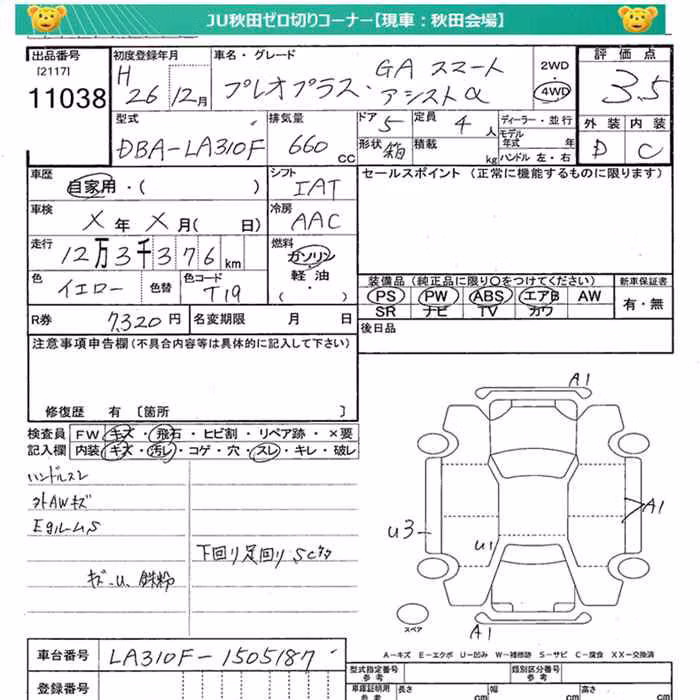 JU秋田ゼロ切りコーナー【現車：秋田会場】
出品番号
[2117]
11038
初度登録年月
H 26 12月
車名・グレード
プレオプラス・GA スマートアシストα
2WD
4WD
評価点
3.5
外装 内装
D C
型式
DBA-LA310F
排気量
660 CC
ドア 5
定員 4人
形状 箱
積載 kg
ディーラー・並行
モデル年式 年
ハンドル 左・右
車歴
自家用・( )
シフト
IAT
セールスポイント（正常に機能するものに限ります）
車検
X年X月( 日)
冷房
AAC
走行
12万3千376km
燃料
ガソリン
軽油
( ・ )
色
イエロー
色替
色コード
T19
装備品（純正品に限り○をつけてください）
PS PW ABS エアB AW
SR ナビ TV カワ
新車保証書
有・無
R券 7,320円
名変期限 月 日
後日品
注意事項申告欄(不具合内容等は具体的に記入して下さい)
修復歴 有 [箇所 ]
検査員
記入欄
FW キズ・飛石・ヒビ割・リペア跡・×要
内装 キズ・汚レ・コゲ・穴・スレ・キレ・破レ
ハンドルスレ
外AWキズ
Egルーム S
下回り足回り S
キズ・U、鉄粉
A1
A1
U3
U1
A1
スペア
A－キズ E－エクボ U－凹み W－補修跡 S－サビ C－腐食 XX－交換済
車台番号
LA310F-1505187
登録番号
型式指定番号
参考
類別区分番号
参考
車庫証明用
参考
長さ cm
幅 cm
高さ cm